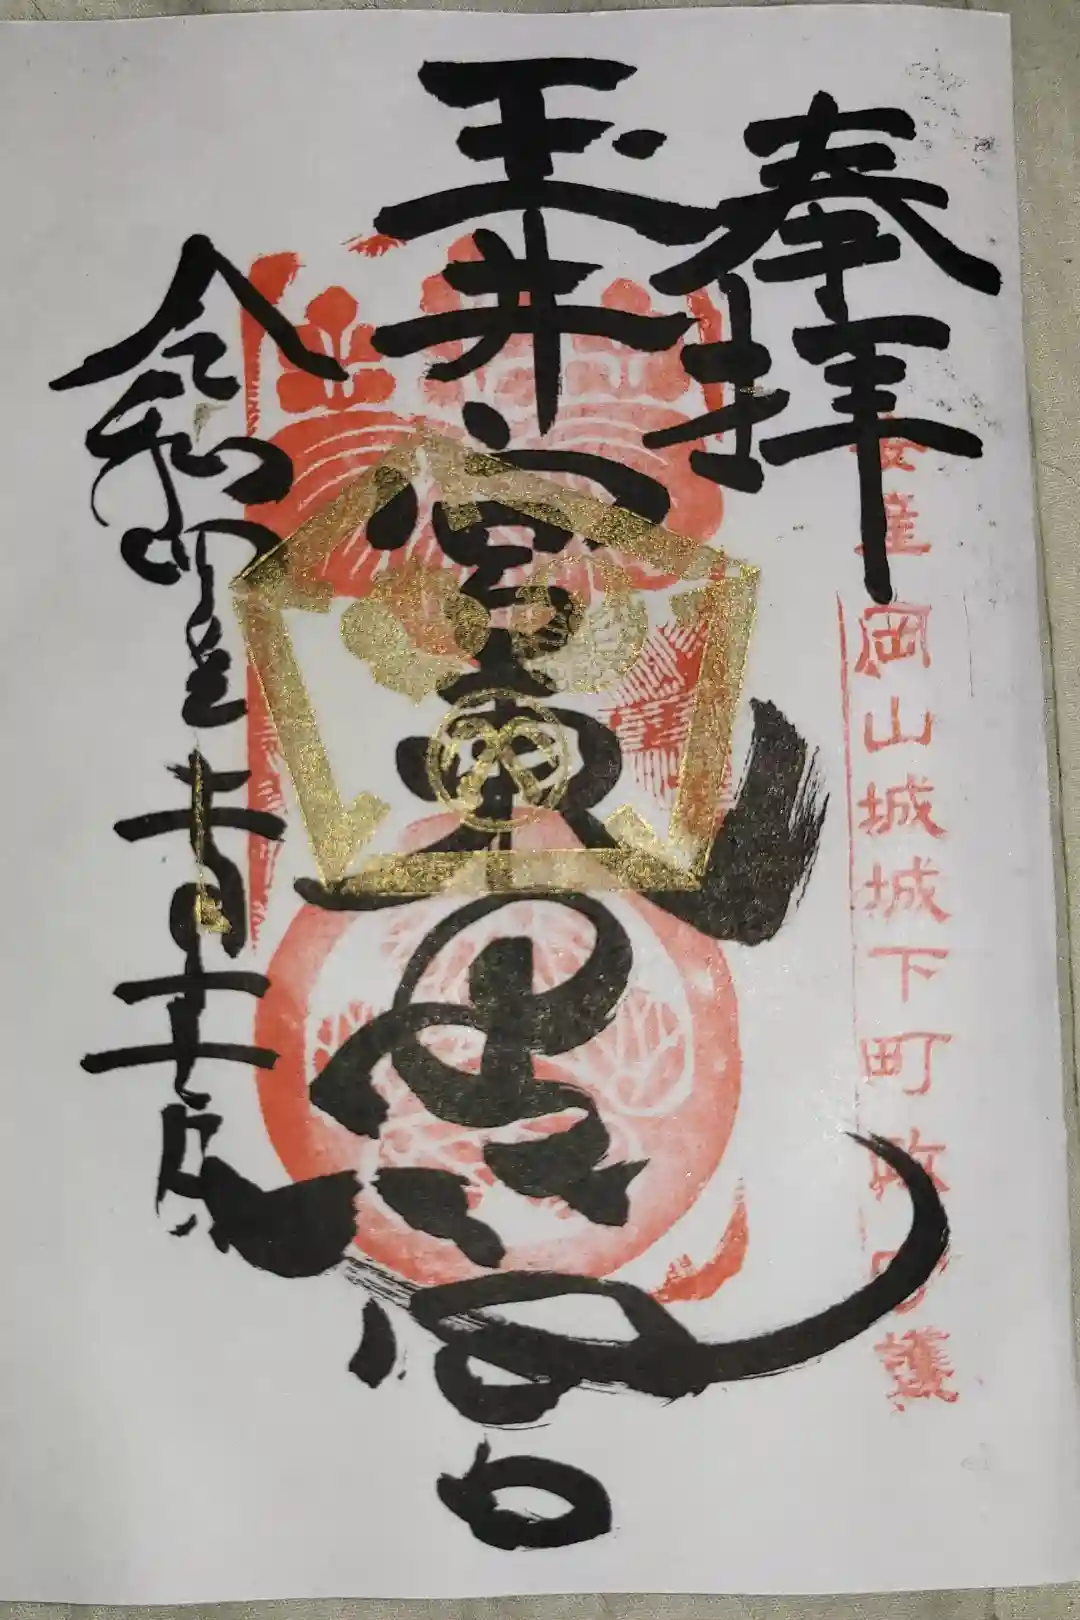 奉拝
安産 岡山城城下町 守護
玉井宮東照宮
令和四年十一月十一日